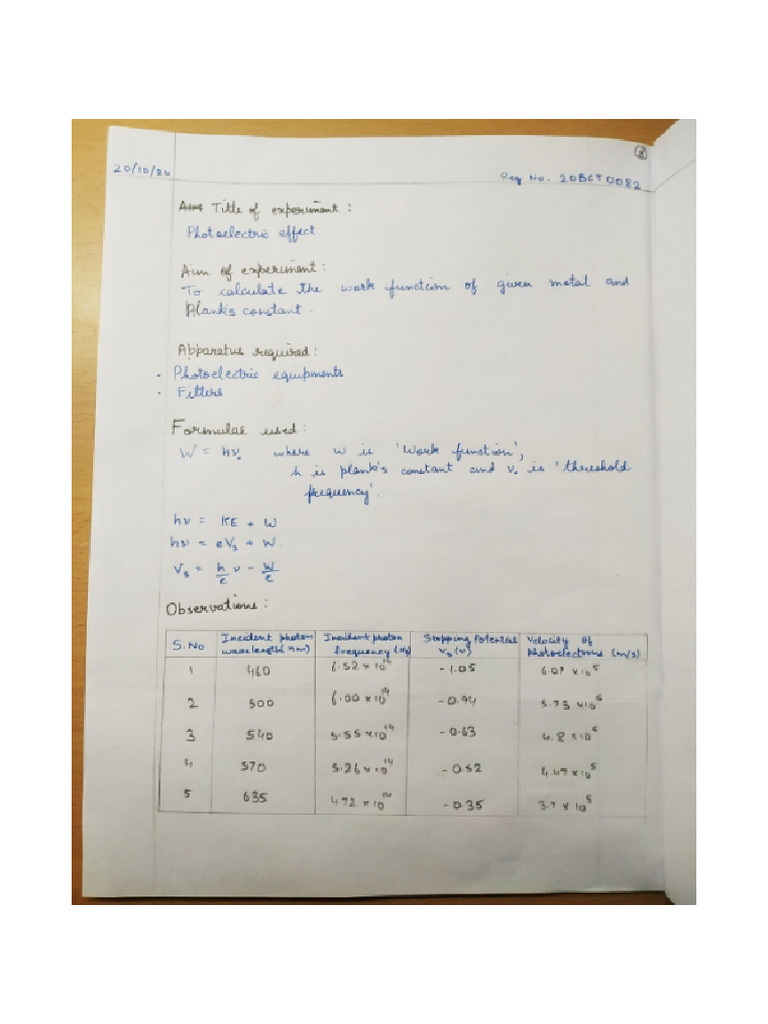 20/10/20
Reg No. 20BCT0082
Aim Title of experiment :
Photoelectric effect
Aim of experiment :
To calculate the work function of given metal and
Plank's constant.
Apparatus required :
• Photoelectric equipments
• Filters
Formulae used :
W = hν₀ where W is 'Work function',
h is plank's constant and ν₀ is 'threshold
frequency'.
hν = KE + W
hν = eVₛ + W.
Vₛ = h/e ν - W/e
Observations :
S.No | Incident photon wavelength (nm) | Incident photon frequency (Hz) | Stopping Potential Vₛ (V) | Velocity of Photoelectrons (m/s)
1 | 460 | 6.52 × 10¹⁴ | -1.05 | 6.07 × 10⁵
2 | 500 | 6.00 × 10¹⁴ | -0.94 | 5.73 × 10⁵
3 | 540 | 5.55 × 10¹⁴ | -0.63 | 4.8 × 10⁵
4 | 570 | 5.26 × 10¹⁴ | -0.52 | 4.47 × 10⁵
5 | 635 | 4.72 × 10¹⁴ | -0.35 | 3.7 × 10⁵